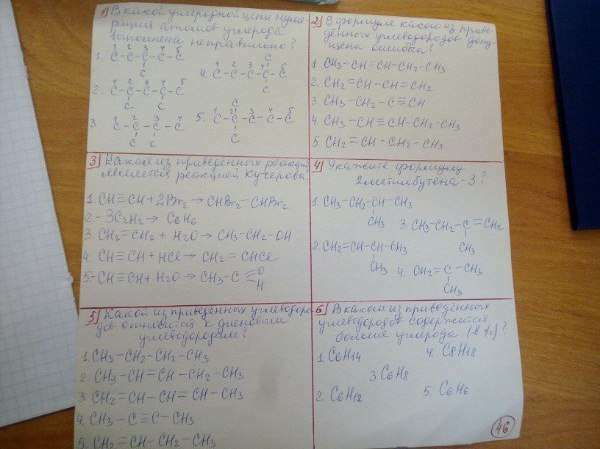 1) В какой углеродной цепи нуме-
рация атомов углерода
выполнена неправильно?
2) В формуле какого из приве-
дённых углеводородов допу-
щена ошибка?
1. CH3-CH=CH-CH2-CH3
2. CH2=CH-CH=CH2
3. CH3-CH2-C≡CH
4. CH3-CH≡CH-CH2-CH3
5. CH2=CH-CH2-CH3
3) Какая из приведенных реакций
является реакцией Кучерова
1. CH≡CH+2Br2→CHBr2-CHBr2
2. 3C2H2→C6H6
3. CH2=CH2+H2O→CH3-CH2-OH
4. CH≡CH+HCl→CH2=CHCl
5. CH≡CH+H2O→CH3-C=O
H
4) Укажите формулу
2метилбутена-3?
CH3
3. CH3-CH2-C=CH2
CH3
2. CH2=CH-CH-CH3
CH3
4. CH2=C-CH3
CH3
5) Какой из приведенных углеводоро-
дов относится к диеновым
углеводородам?
1. CH3-CH2-CH2-CH3
2. CH3-CH=CH-CH2-CH3
3. CH2=CH-CH=CH-CH3
4. CH3-C≡C-CH3
5. CH2=CH-CH2-CH3
6) В каком из приведённых
углеводородов содержится
больше углерода (в %)?
1. C6H14
4. C8H18
3. C6H8
2. C6H12
5. C6H6
46